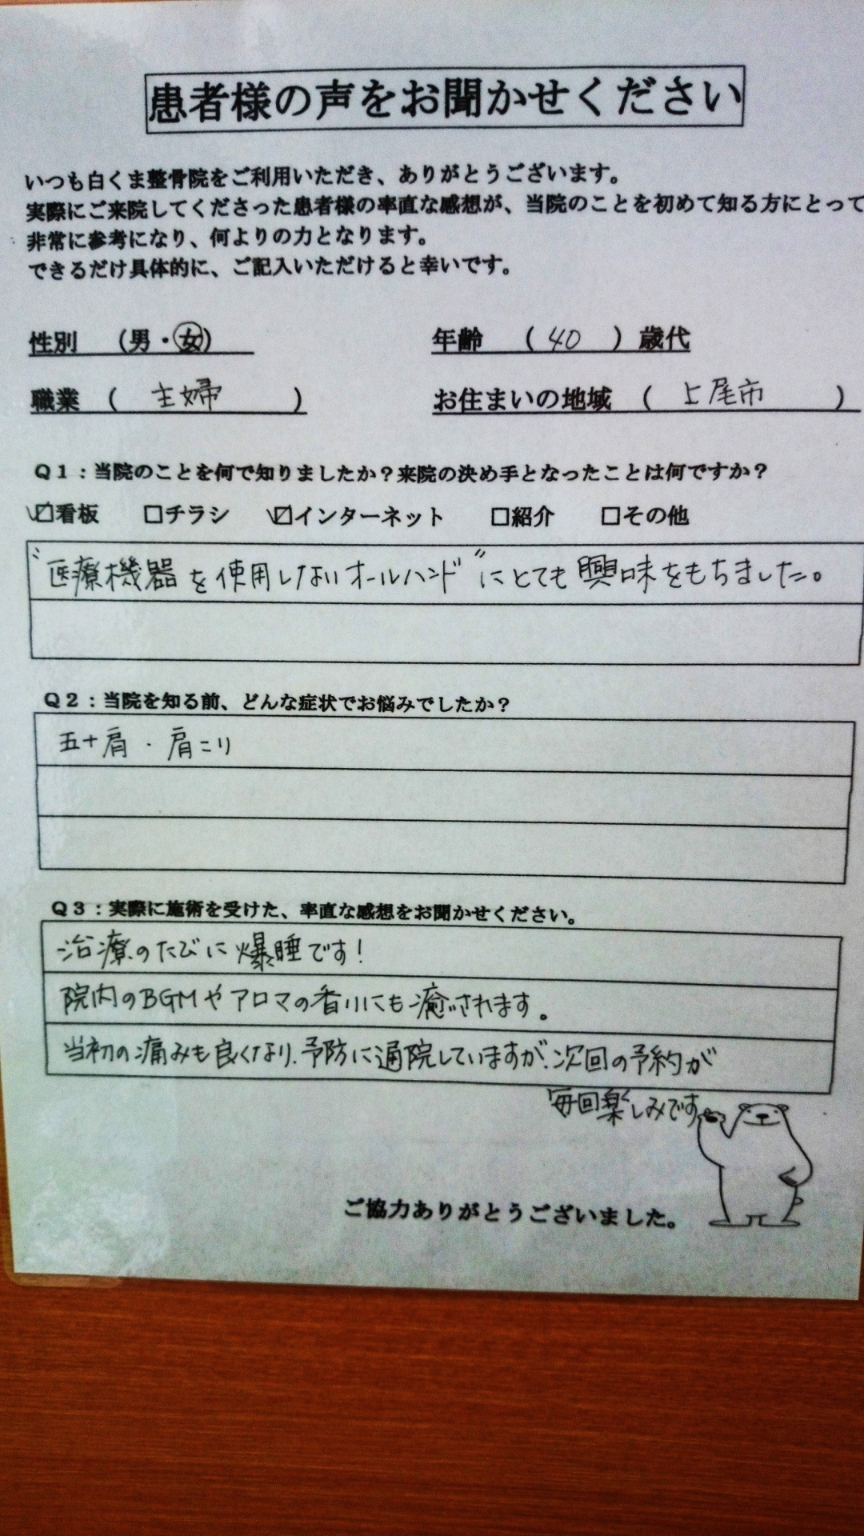 患者様の声をお聞かせください
いつも白くま整骨院をご利用いただき、ありがとうございます。
実際にご来院してくださった患者様の率直な感想が、当院のことを初めて知る方にとって
非常に参考になり、何よりの力となります。
できるだけ具体的に、ご記入いただけると幸いです。
性別 (男・女) 年齢 ( 40 ) 歳代
職業 ( 主婦 ) お住まいの地域 ( 上尾市 )
Q1:当院のことを何で知りましたか?来院の決め手となったことは何ですか?
☑看板 □チラシ ☑インターネット □紹介 □その他
"医療機器を使用しないオールハンド"にとても興味をもちました。
Q2:当院を知る前、どんな症状でお悩みでしたか?
五十肩・肩こり
Q3:実際に施術を受けた、率直な感想をお聞かせください。
治療のたびに爆睡です!
院内のBGMやアロマの香りにも癒されます。
当初の痛みも良くなり、予防に通院していますが、次回の予約が
毎回楽しみです
ご協力ありがとうございました。